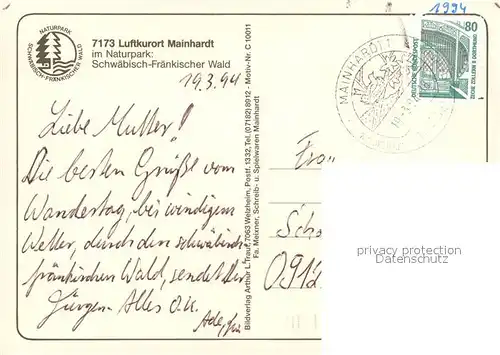 1994
NATURPARK
SCHWÄBISCH-FRÄNKISCHER WALD
7173 Luftkurort Mainhardt
im Naturpark:
Schwäbisch-Fränkischer Wald
19.3.94
Liebe Mutter!
Die besten Grüße vom
Wandertag, bei windigem
Wetter, durch den schwäbisch
fränkischen Wald, sendet Dir
Jürgen. Alles o.k.
Ade,
Bildverlag Arthur L. Trauf, 7063 Welzheim, Postf. 1332, Tel. (07182) 8912 - Motiv-Nr. C 10011
Fa. Meixner, Schreib- u. Spielwaren Mainhardt
MAINHARDT 1
80
DEUTSCHE BUNDESPOST
Fra
Sch
0912
privacy protection
Datenschutz